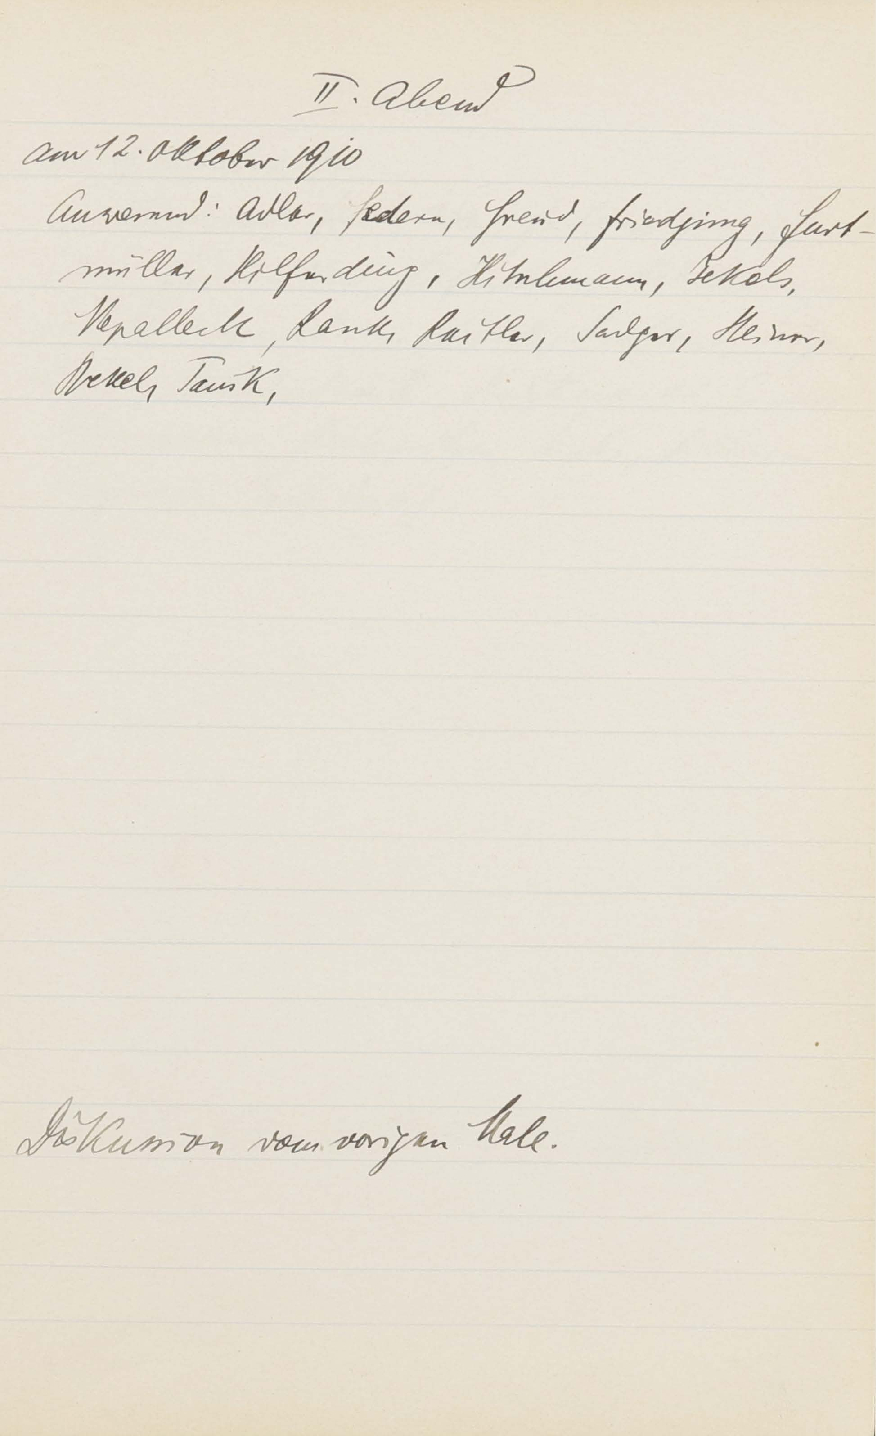 II. Abend
am 12. Oktober 1910
Anwesend: Adler, Federn, Freud, Friedjung, Furt-
müller, Hilferding, Hitschmann, Jekels,
Rank, Reitler, Sadger, Steiner,
Stekel, Tausk,
Diskussion vom vorigen Male.